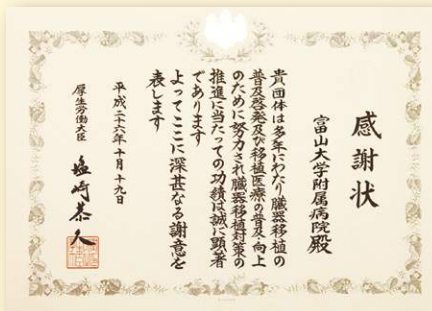 感謝状
富山大学附属病院殿
貴団体は多年にわたり臓器移植の
普及啓発及び移植医療の普及向上
のために努力され臓器移植対策の
推進に当たっての功績は誠に顕著
であります
よってここに深甚なる謝意を
表します
平成二十六年十月十九日
厚生労働大臣 塩崎恭久